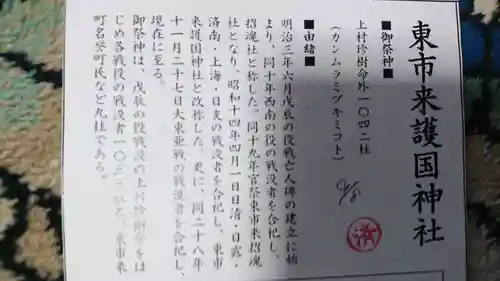 東市来護国神社
■御祭神■
上村珍樹命外一〇四二柱
（カンムラミヅキミコト）
■由緒■
明治三年六月戊辰の役戦亡人碑の建立に始
まり、同十年西南の役の戦没者を合祀し、
招魂社と称した。同十九年官祭東市来招魂
社となり、昭和十四年四月一日日清・日露・
済南・上海・日支の戦没者を合祀し、東市
来護国神社と改称した。更に、同二十八年
十一月二十七日大東亜戦の戦没者を合祀し、
現在に至る。
御祭神は、戊辰の役戦没の上村珍樹命をは
じめ各戦役の戦没者一〇三三柱と、東市来
町名誉町民など九柱である。
済